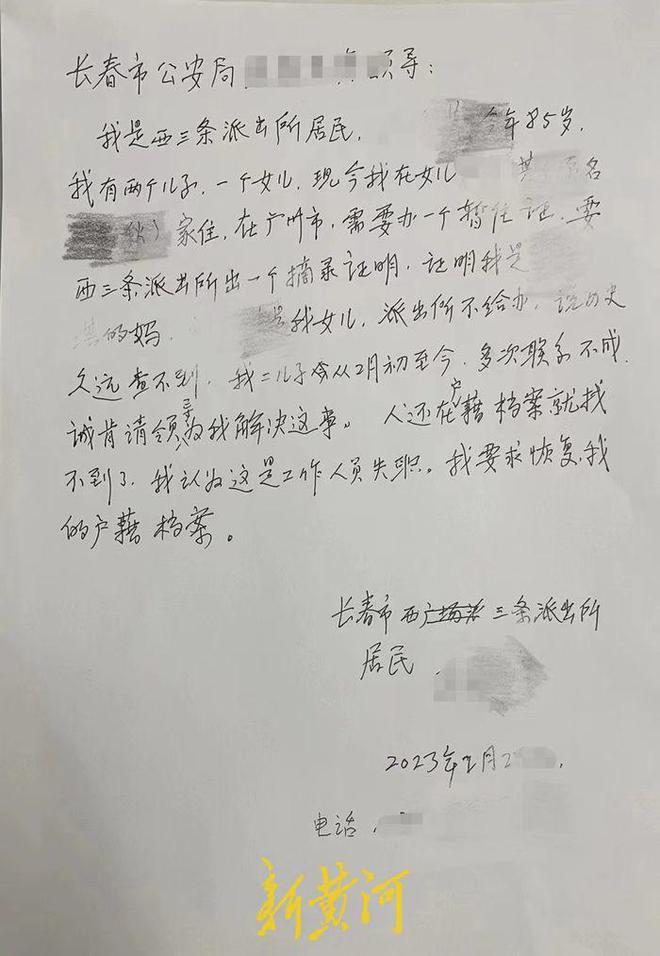 长春市公安局 领导：
我是西三条派出所居民， 今年85岁，
我有两个儿子，一个女儿，现今我在女儿 其 名
家住，在广州市，需要办一个暂住证，要
西三条派出所出一个摘录证明，证明我是
的妈， 是我女儿，派出所不给办，说历史
久远查不到，我二儿子 从2月初至今，多次联系不成，
诚肯请领导为我解决这事。人还在户藉档案就找
不到了，我认为这是工作人员失职。我要求恢复我
的户藉档案。
长春市西 三条派出所
居民，
2023年2月2 .
电话，
新黄河